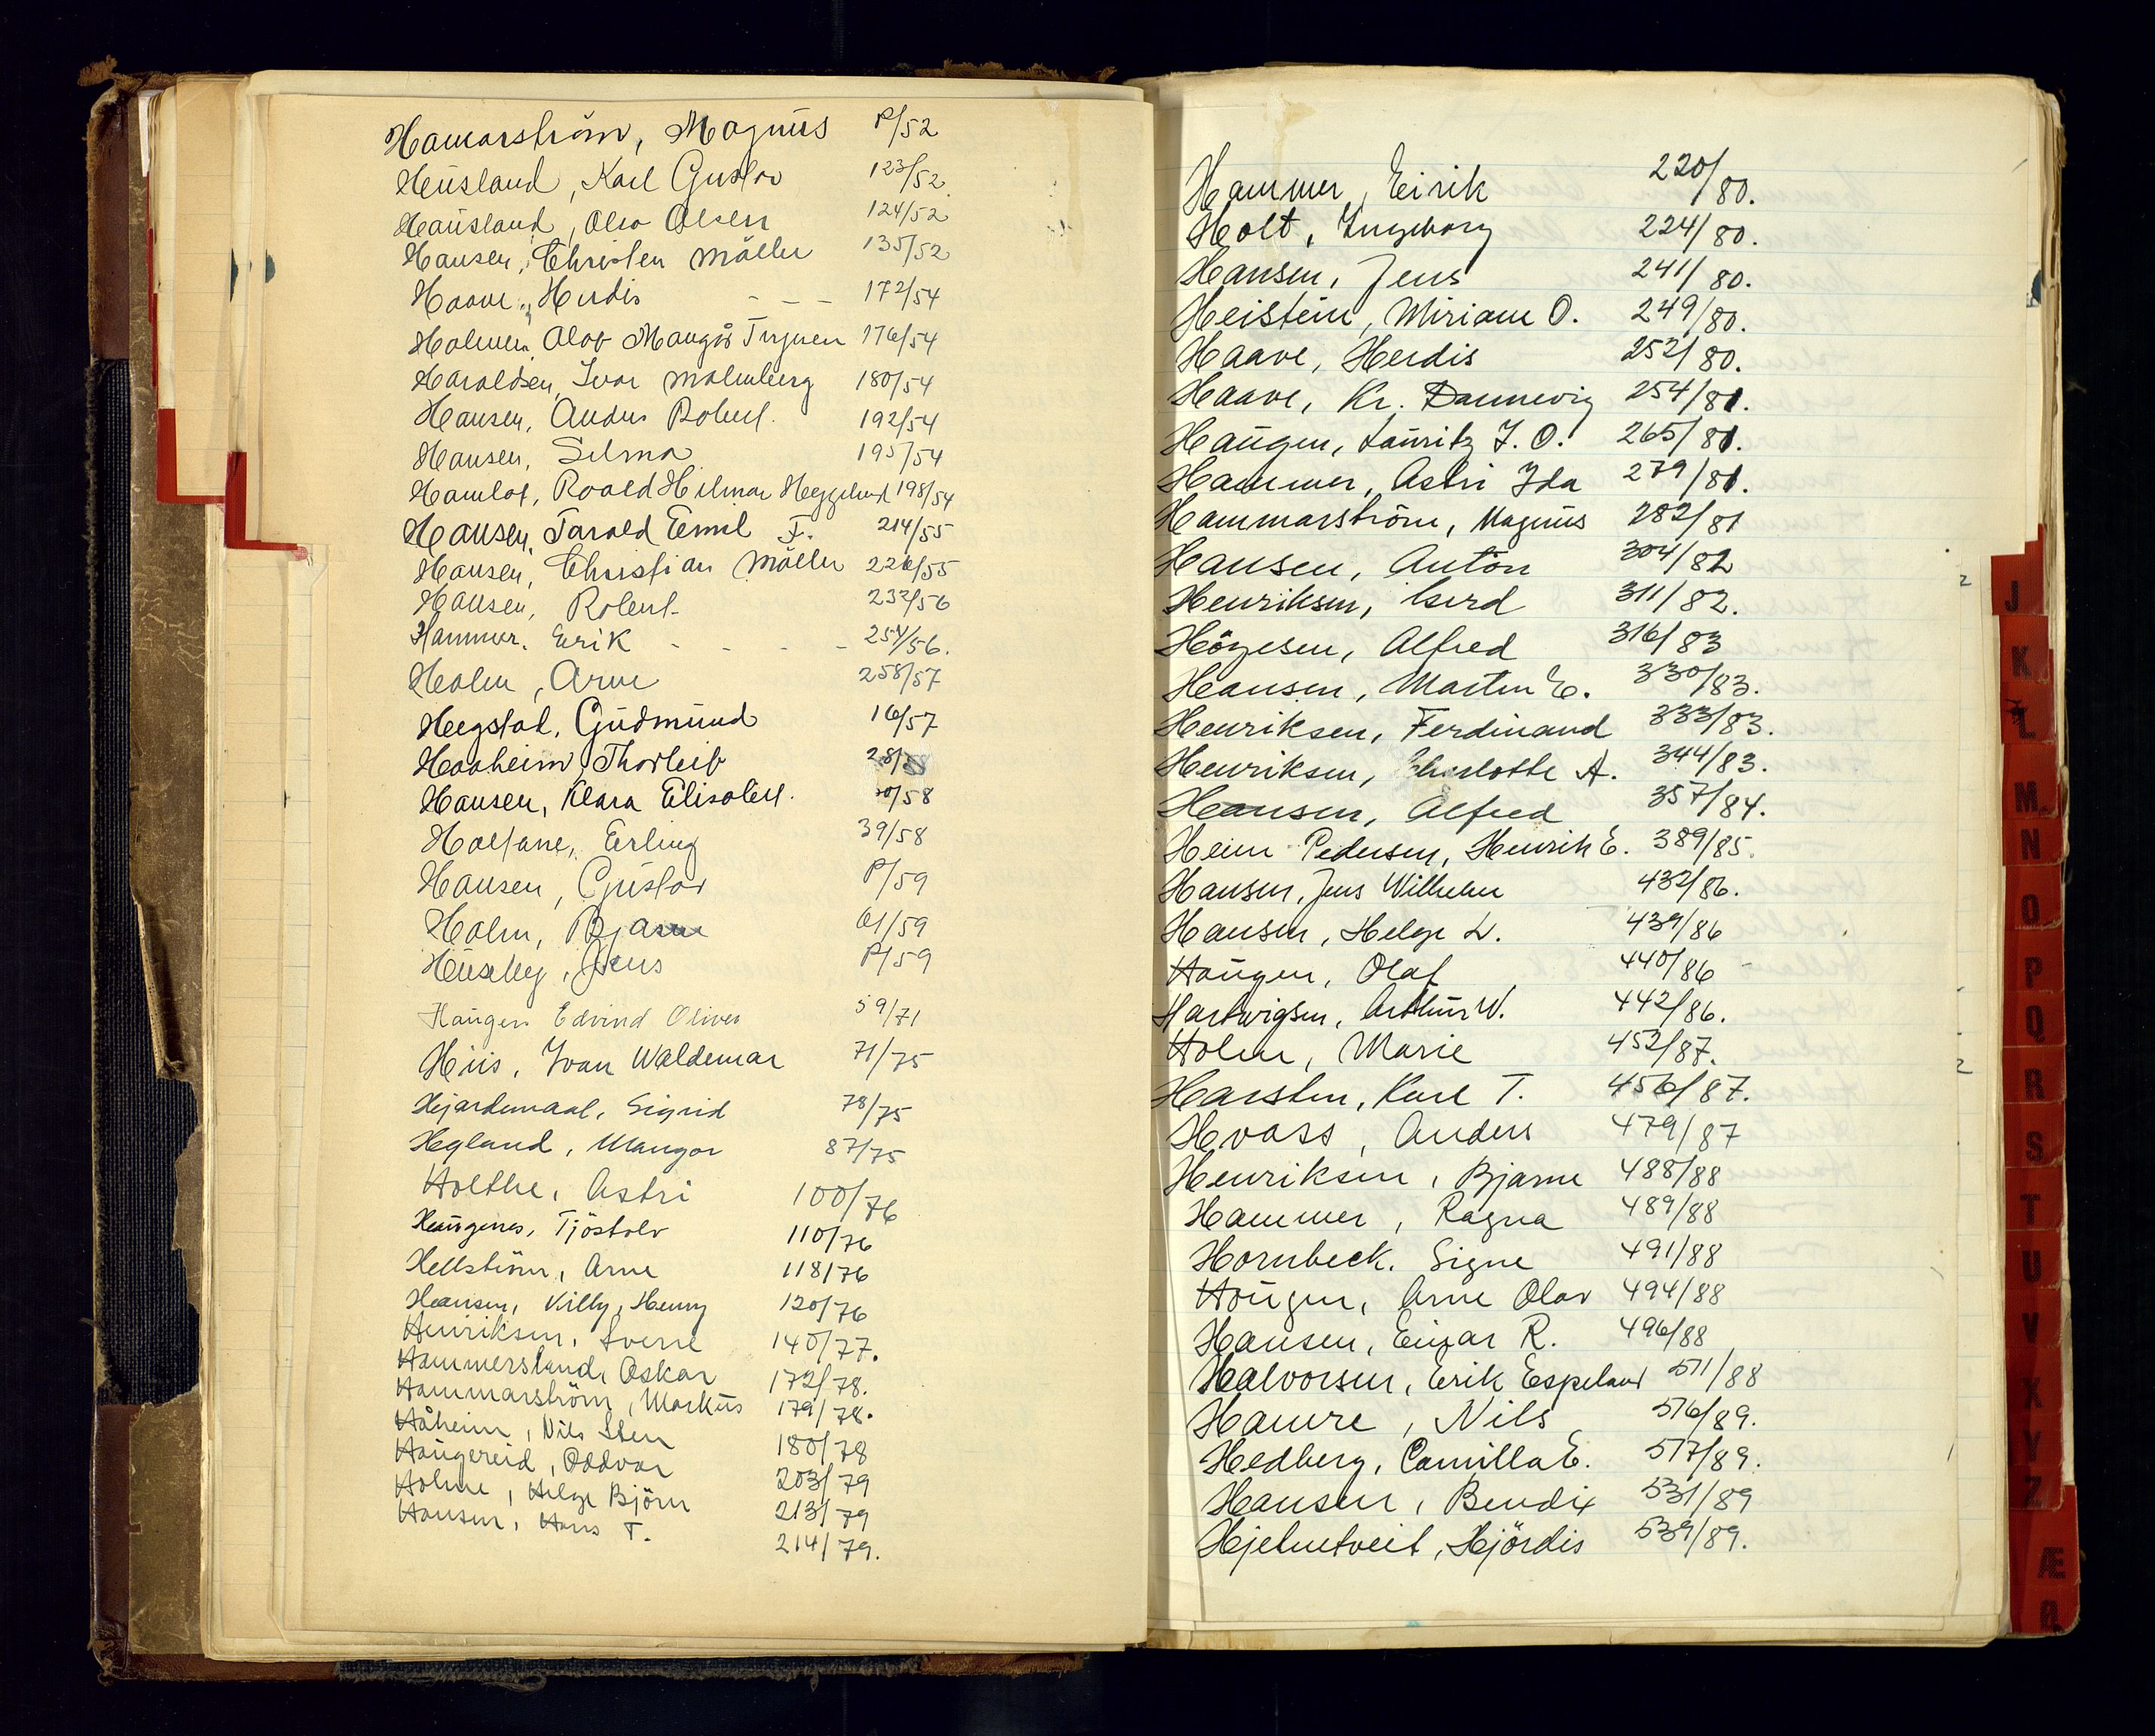 Hamarström, Magnus P/52
Heusland, Karl Gustav 123/52
Hausland, Olav Olsen 124/52
Hansen, Christen Möller 135/52
Haave, Herdis - - - 172/54
Holmen, Olav Mangor Trygven 176/54
Haraldsen, Ivar Malmberg 180/54
Hansen, Anders Robert. 192/54
Hansen, Selma 195/54
Hamlot, Roald Hilmar Heggelund 198/54
Hansen, Tarald Emil F. 214/55
Hansen, Christian Möller 226/55
Hansen, Robert 232/56
Hammer. Erik - - - - 254/56.
Holm, Arne 258/57
Hegstad, Gudmund 16/57
Haaheim, Thorleif 28/58
Hansen, Klara Elisabet. 30/58
Holtane, Erling 39/58
Hansen, Gustav P/59
Holm, Bjarne 61/59
Huseby, Jens P/59
Haugen Edvind Oliver 59/71
Hiis, Ivan Waldemar 71/75
Hjardemaal, Sigrid 78/75
Hegland, Mangor 87/75
Holthe, Astri 100/76
Haugenes, Tjöstolv 110/76
Hellström, Arne 118/76
Hansen, Villy, Henry 120/76
Henriksen, Sverre 140/77.
Hammersland, Oskar 172/78.
Hammarström, Markus 179/78.
Håheim, Nils Sten 180/78
Haugereid, Oddvar 203/79
Holme, Helge Björn 213/79
Hansen, Hans T. 214/79.
Hammer, Eirik 220/80.
Holt, Ingeborg 224/80.
Hansen, Jens 241/80.
Heistein, Miriam O. 249/80.
Haave, Herdis 252/80.
Haave, Kr. Dannevig 254/81.
Haugen, Lauritz J. O. 265/81.
Hammer, Astri Ida 279/81.
Hammarström, Magnus 282/81
Hansen, Anton 304/82
Henriksen, Gerd 311/82.
Högesen, Alfred 316/83
Hansen, Martin E. 330/83.
Henriksen, Ferdinand 333/83.
Henriksen, Charlotte A. 344/83.
Hansen, Alfred 357/84.
Heim Pedersen, Henrik E. 389/85.
Hansen, Jens Wilhelm 432/86.
Hansen, Helge L. 439/86
Haugen, Olaf 440/86
Hartwigsen, Arthur W. 442/86.
Holm, Marie 452/87.
Harsten, Karl T. 456/87.
Hvass, Anders 479/87
Henriksen, Bjarne 488/88
Hammer, Ragna 489/88
Hornbeck. Signe 491/88
Haugen, Arne Olav 494/88
Hansen, Einar R. 496/88
Halvorsen, Erik Espeland 511/88
Hamre, Nils 516/89.
Hedberg, Camilla E. 517/89.
Hansen, Bendix 531/89
Hjelmtveit, Hjördis 539/89.
J
K
L
M
N
O
P
Q
R
S
T
U
V
X
Y
Z
Æ